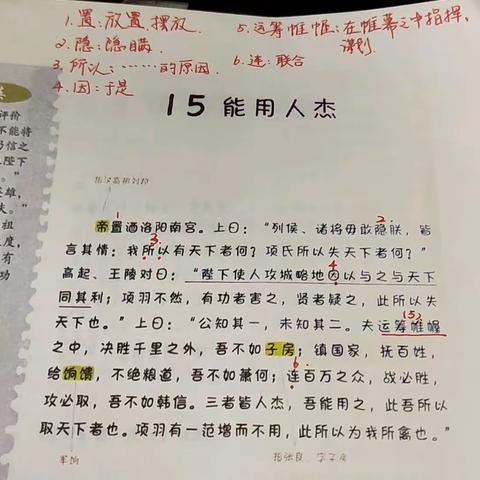 1.置:放置 摆放.
5.运筹帷幄:在帷幕之中指挥、
谋划
2.隐:隐瞒.
3.所以:……的原因.
6.连:联合
4.因:于是
15 能用人杰
指汉高祖刘邦
1
帝置酒洛阳南宫。上曰:“列侯、诸将毋敢隐朕,皆
3.
言其情:我所以有天下者何?项氏所以失天下者何?”
4
高起、王陵对曰:“陛下使人攻城略地因以与之与天下
同其利;项羽不然,有功者害之,贤者疑之,此所以失
(5)
天下也。”上曰:“公知其一,未知其二。夫运筹帷幄
之中,决胜千里之外,吾不如子房;镇国家,抚百姓,
6.
给饷馈,不绝粮道,吾不如萧何;连百万之众,战必胜,
攻必取,吾不如韩信。三者皆人杰,吾能用之,此吾所以
取天下者也。项羽有一范增而不用,此所以为我所禽也。”
军饷
指张良,字子房
评价
不能将
信之
陛下
。”
雄,
失。”
祖
度,
有
功